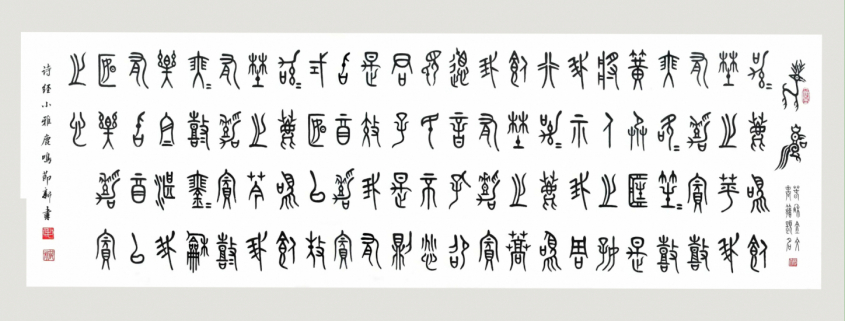 鹿鳴
呦呦鹿鳴食
野之苹我
有嘉賓鼓
瑟吹笙鼓
簧承筐是
將人之好
我示我周
行呦呦鹿鳴
食野之蒿
我有嘉賓
德音孔昭
視民不恌
君子是則
是效我有
旨酒嘉賓
式燕以敖
呦呦鹿鳴食
野之芩我
有嘉賓鼓
瑟鼓琴和
樂且湛我
有旨酒以
燕樂嘉賓
之心
诗经小雅鹿鸣